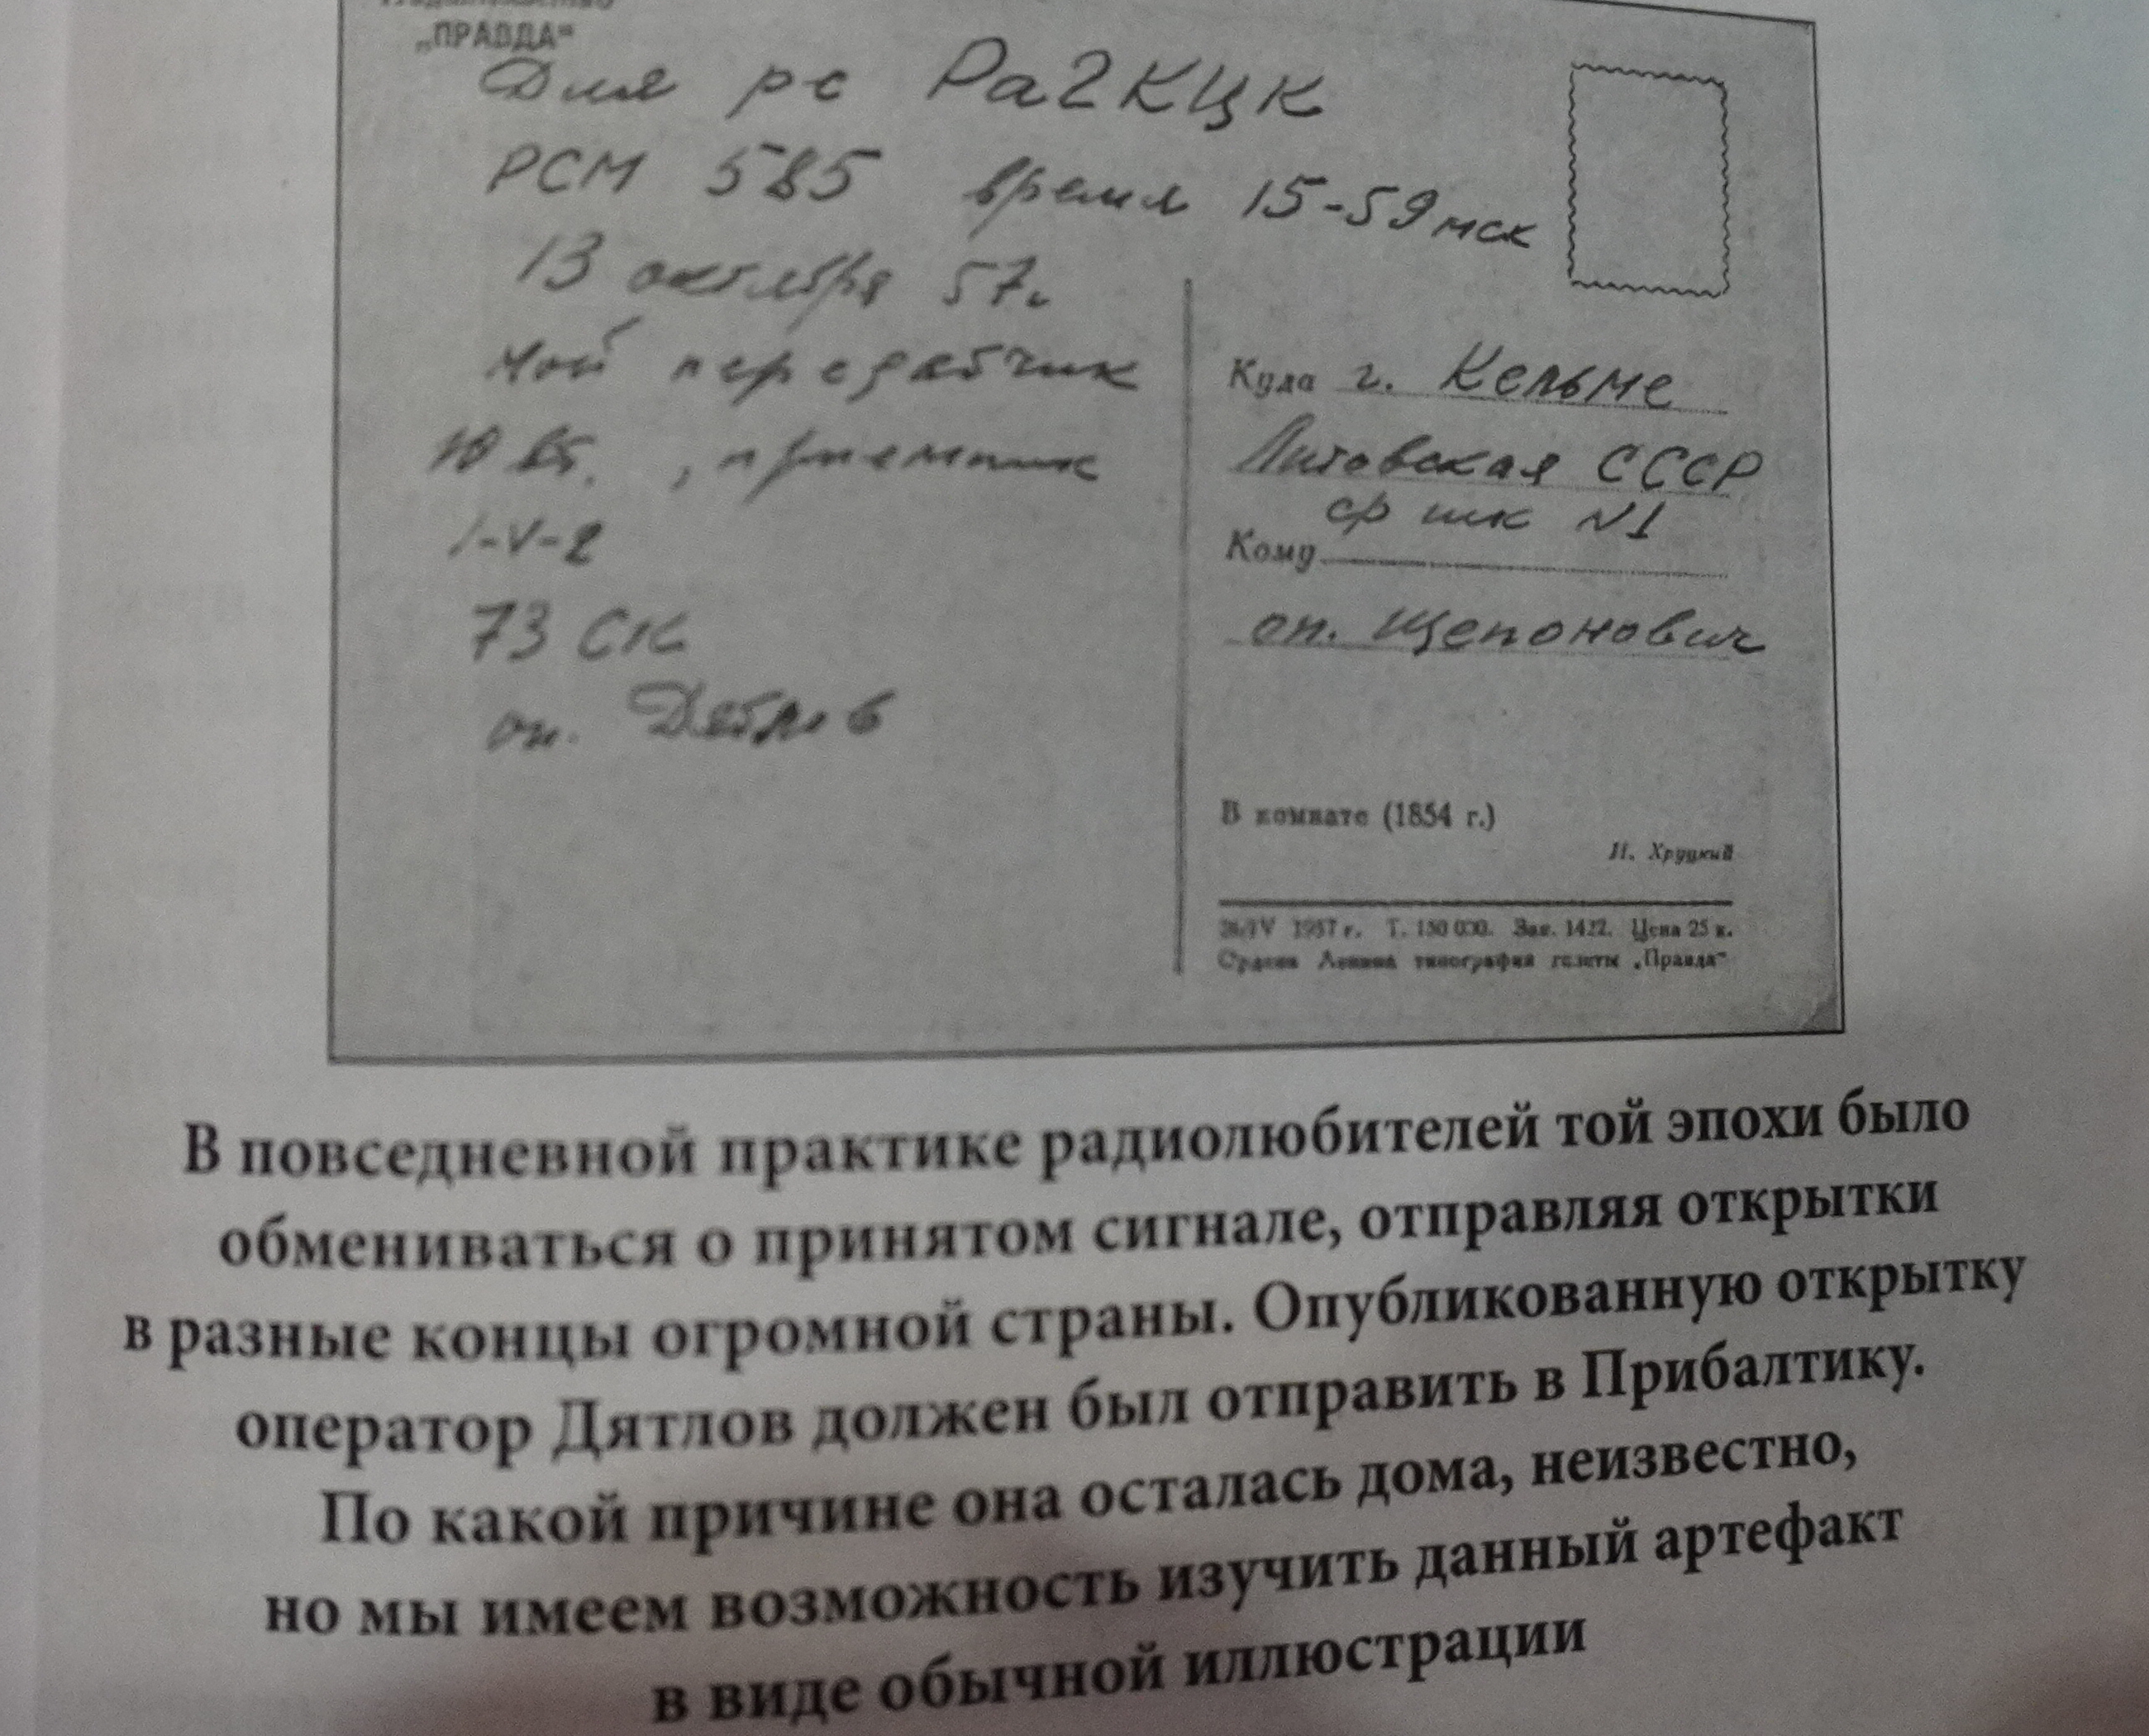 „ПРАВДА“
Для рс Ра2КЦК
РСМ 585 время 15-59 мск
13 октября 57г.
Мой передатчик
10 вт. , приемник
1-V-2
73 СК
оп. Дятлов
Куда г. Кельме
Литовская СССР
ср шк N1
Кому
оп. Щепонович
В комнате (1854 г.)
И. Хруцкий
26/IV 1957 г. Т. 150 000. Зак. 1422. Цена 25 к.
Ордена Ленина типография газеты „Правда“
В повседневной практике радиолюбителей той эпохи было
обмениваться о принятом сигнале, отправляя открытки
в разные концы огромной страны. Опубликованную открытку
оператор Дятлов должен был отправить в Прибалтику.
По какой причине она осталась дома, неизвестно,
но мы имеем возможность изучить данный артефакт
в виде обычной иллюстрации